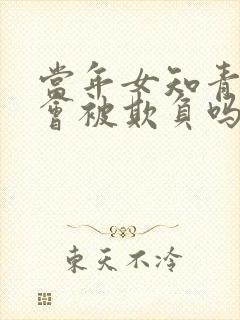 當年女知青
會被欺負吗
東天不冷